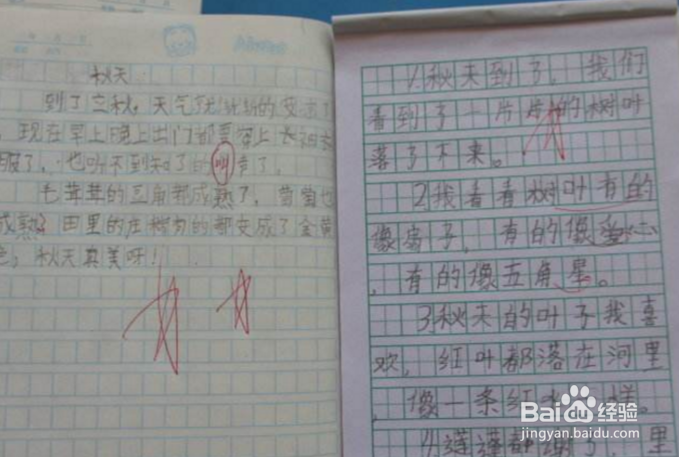 秋天
到了立秋，天气就渐渐的变凉了
，现在早上晚上出门都要穿上长袖衣
服了，也听不到知了的叫声了。
毛茸茸的豆角都成熟了，
成熟了田里的庄稼的都变成了金黄
色。秋天真美呀！
1.秋天到了，我们
看到了一片片的树叶
落了下来。
2.我看着树叶有的
像扇子，有的像爱心
，有的像五角星。
3.秋天的叶子我喜
欢，红叶都落在河里
，像一条红 样。
4. 里
Baidu经验
jingyan.baidu.com